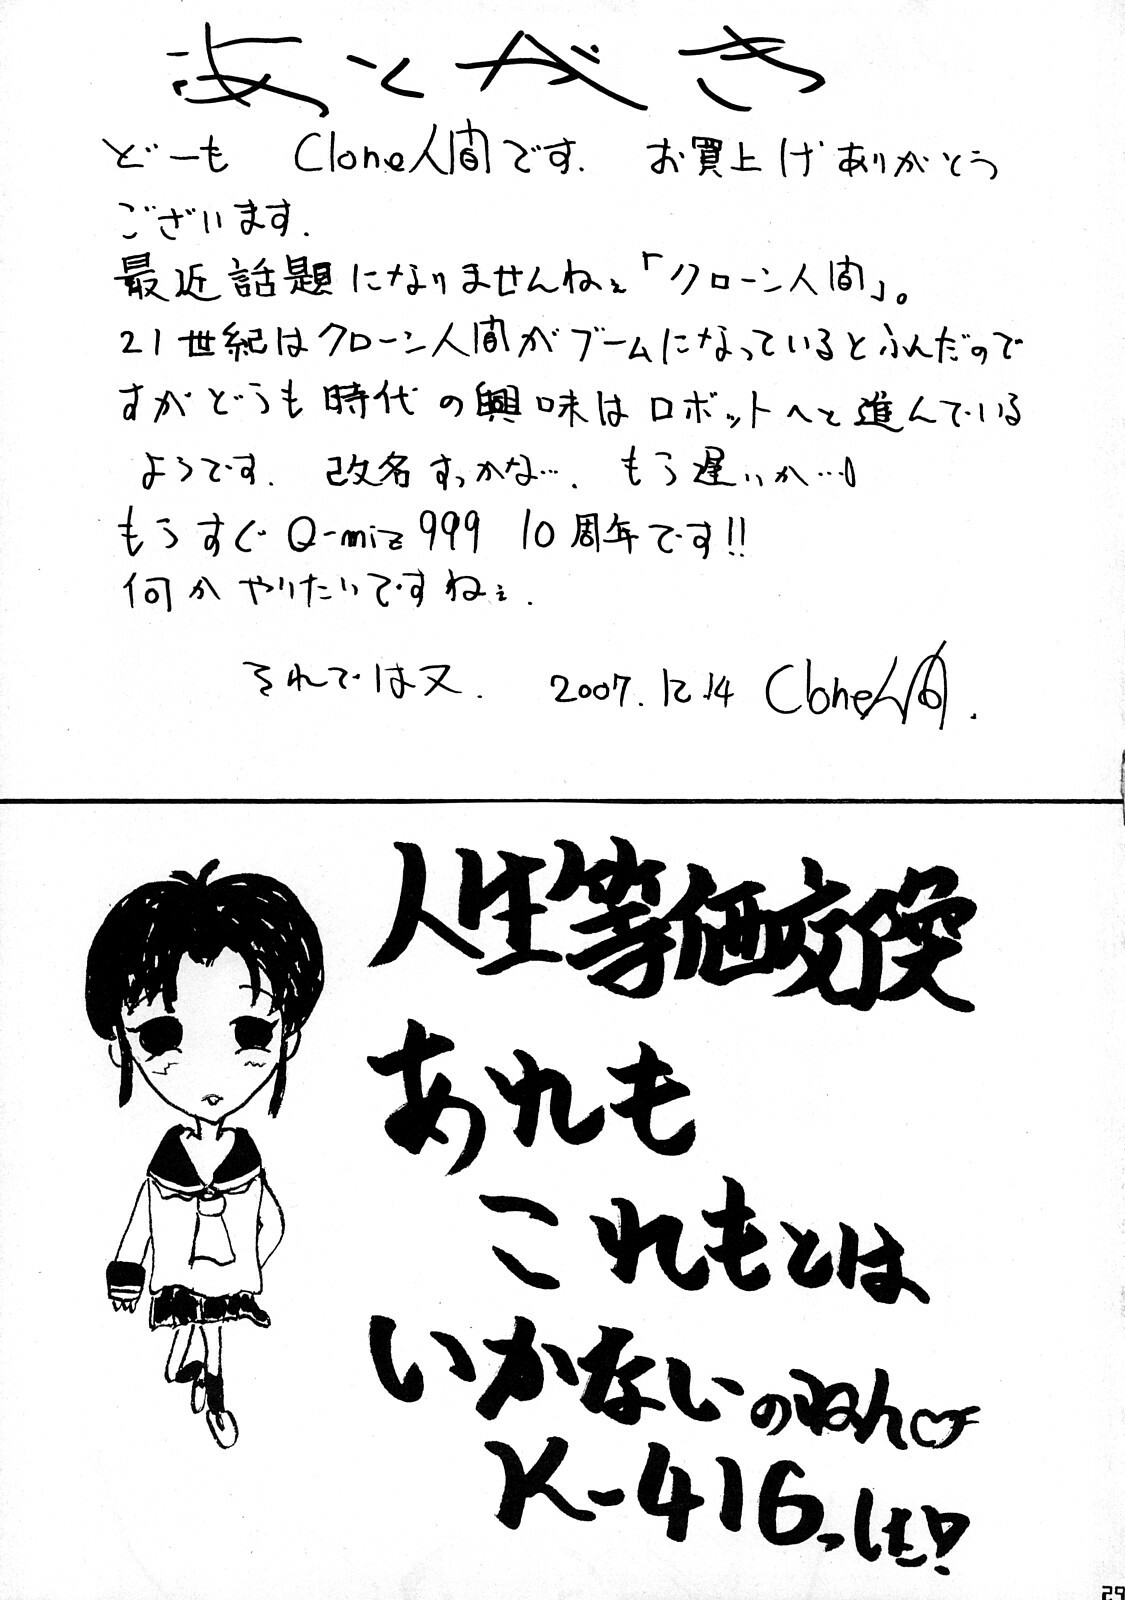 あとがき
どーも Clone人間です. お買上げありがとう
ございます.
最近話題になりませんねぇ「クローン人間」。
21世紀はクローン人間がブームになっているとふんだので
すがどうも時代の興味はロボットへと進んでいる
ようです. 改名すっかな…. もう遅いか…
もうすぐQ-miz999 10周年です!!
何かやりたいですねぇ.
それでは又. 2007.12.14 Clone人間.
人生等価交換
あれも
これもとは
いかないのねん♡
K-416っす!
29